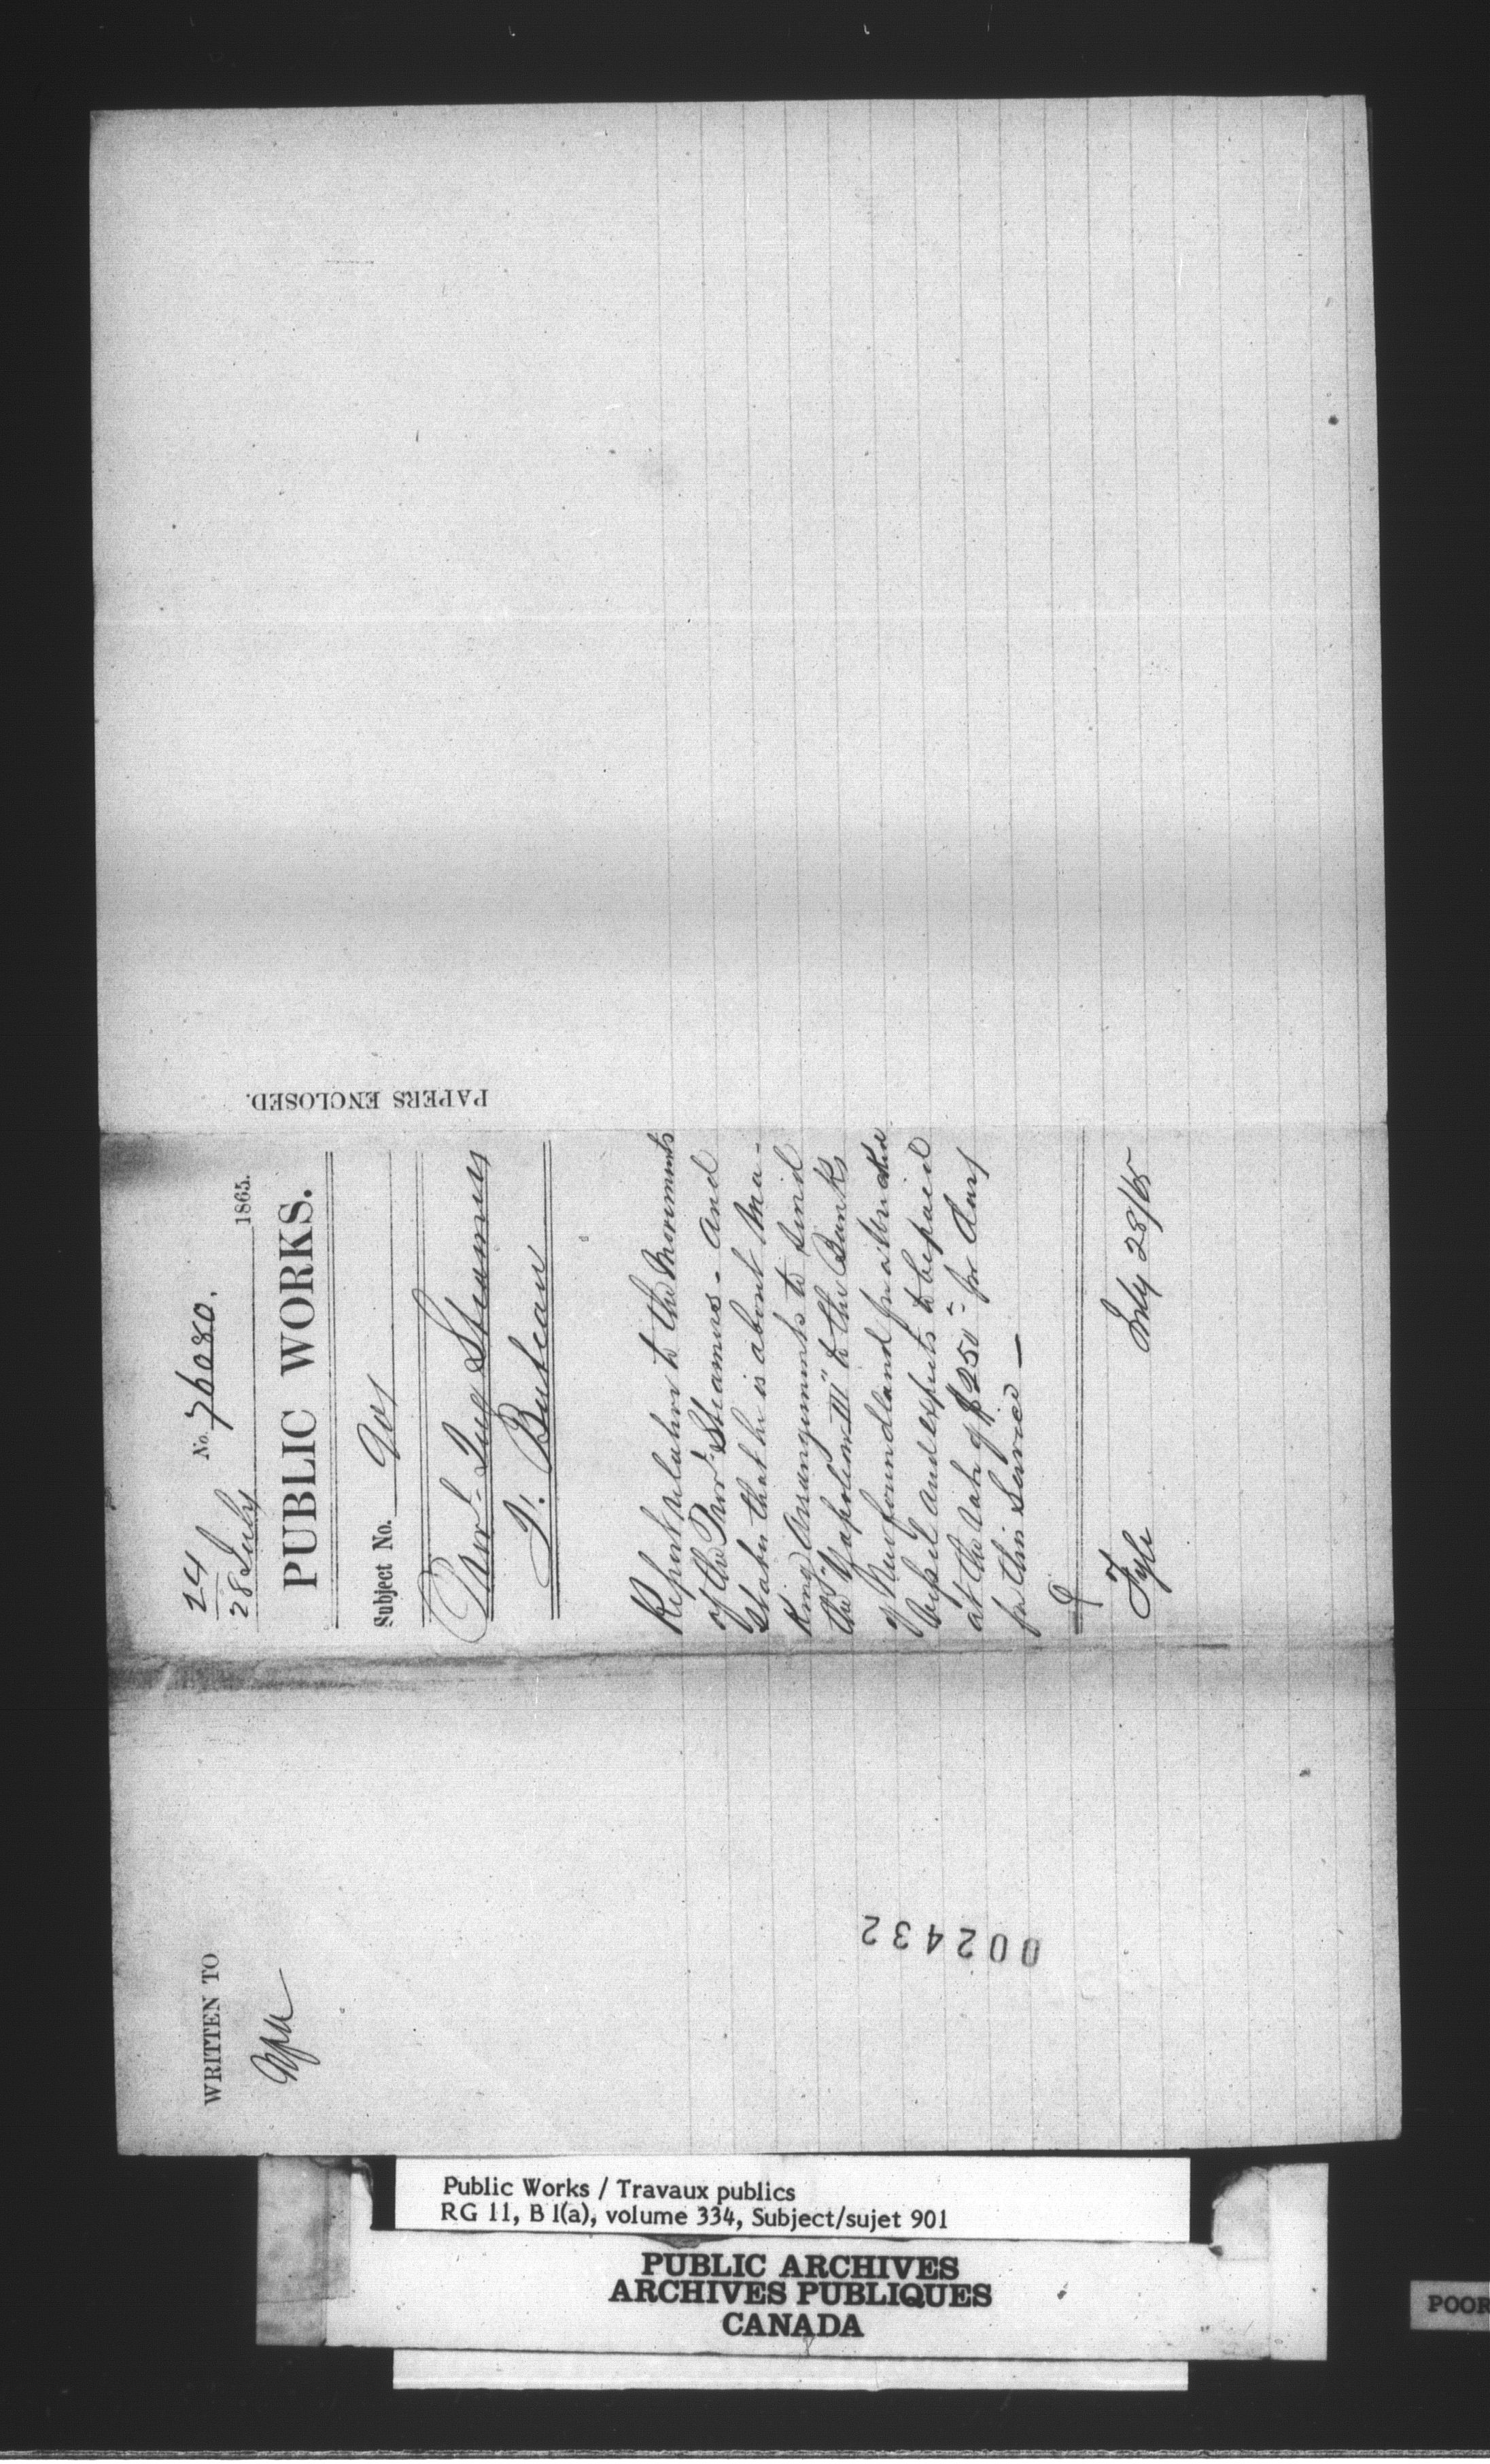 24
28 July
No. 76080.
1865.
PUBLIC WORKS.
Subject No. 901
Provl. Tug Steamers
J. Buteau
Report relative to the Movements
of the Provl. Steamers - and
States that he is about ma-
king Arrangements to send
the "Napoleon III" to the Banks
of Newfoundland for a
Vessel and expects to be paid
at the rate of $250 - per day
for this Service —
Fyle
July 28/65
PAPERS ENCLOSED.
WRITTEN TO
002432
Public Works / Travaux publics
RG 11, B 1(a), volume 334, Subject/sujet 901
PUBLIC ARCHIVES
ARCHIVES PUBLIQUES
CANADA
POOR